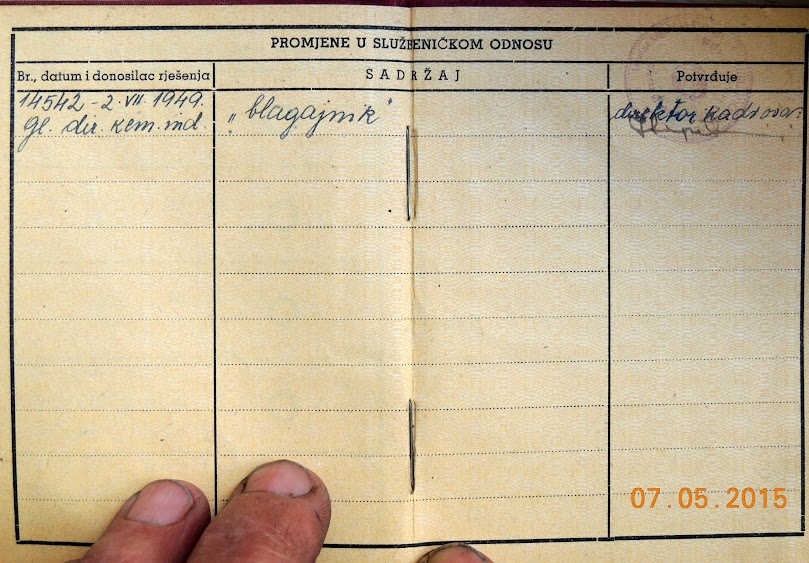 PROMJENE U SLUŽBENIČKOM ODNOSU
Br., datum i donosilac rješenja
SADRŽAJ
Potvrđuje
14542 - 2. VII. 1949.
gl. dir. kem. ind.
„blagajnik"
direktor
07.05.2015